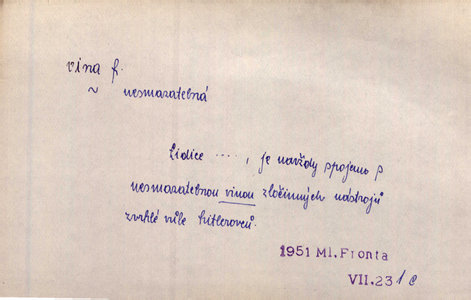 vina f.
~ nesmazatebná
Lidice ...., je navždy spojeno s
nesmazatebnou vinou zločinných nástrojů
zvrhlé vůle hitlerovců.
1951 Ml. Fronta
VII. 23 1c